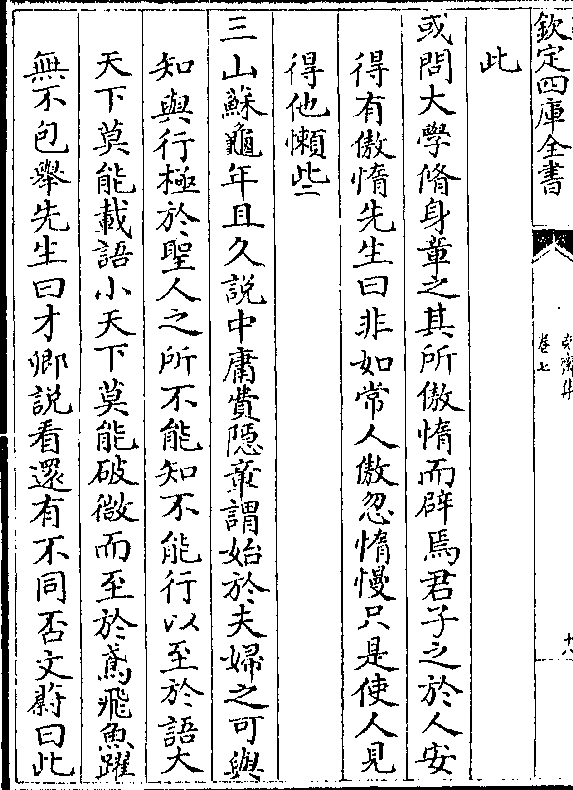 欽定四庫全書
克齋集
卷七
十八
此
或問大學脩身章之其所傲惰而辟焉君子之於人安
得有傲惰先生曰非如常人傲忽惰慢只是使人見
得他懶些
三山蘇龜年且久說中庸費隱章謂始於夫婦之可與
知與行極於聖人之所不能知不能行以至於語大
天下莫能載語小天下莫能破微而至於鳶飛魚躍
無不包舉先生曰才卿說看還有不同否文蔚曰此